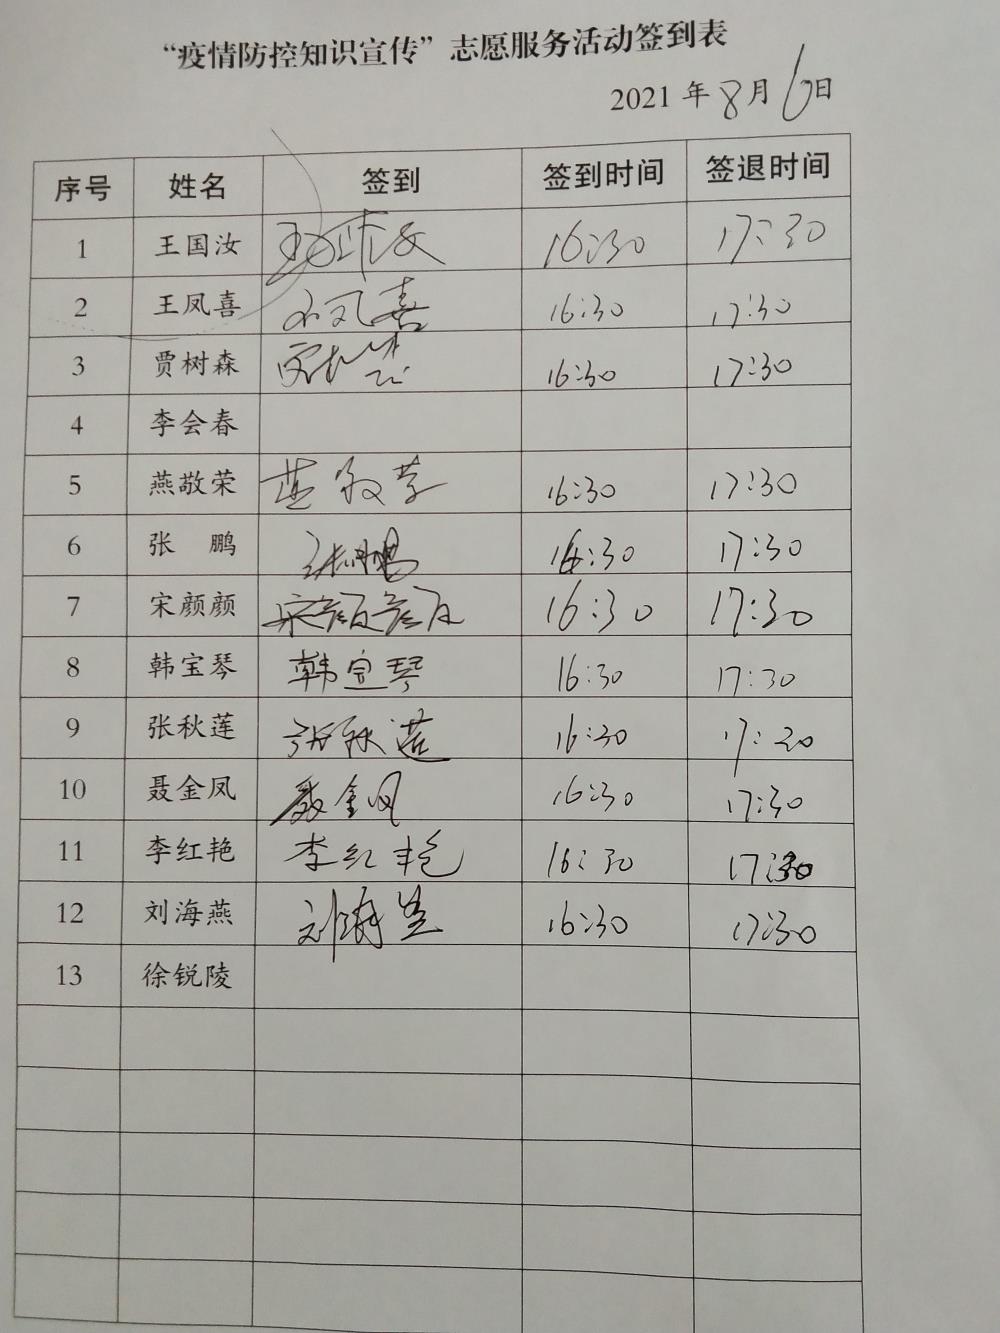 “疫情防控知识宣传”志愿服务活动签到表
2021 年 8 月 6 日
序号 姓名 签到 签到时间 签退时间
1 王国汝 16:30 17:30
2 王凤喜 王凤喜 16:30 17:30
3 贾树森 16:30 17:30
4 李会春
5 燕敬荣 燕敬荣 16:30 17:30
6 张 鹏 张鹏 16:30 17:30
7 宋颜颜 宋颜颜 16:30 17:30
8 韩宝琴 韩宝琴 16:30 17:30
9 张秋莲 张秋莲 16:30 17:20
10 聂金凤 聂金凤 16:30 17:30
11 李红艳 李红艳 16:30 17:30
12 刘海燕 刘海燕 16:30 17:30
13 徐锐陵